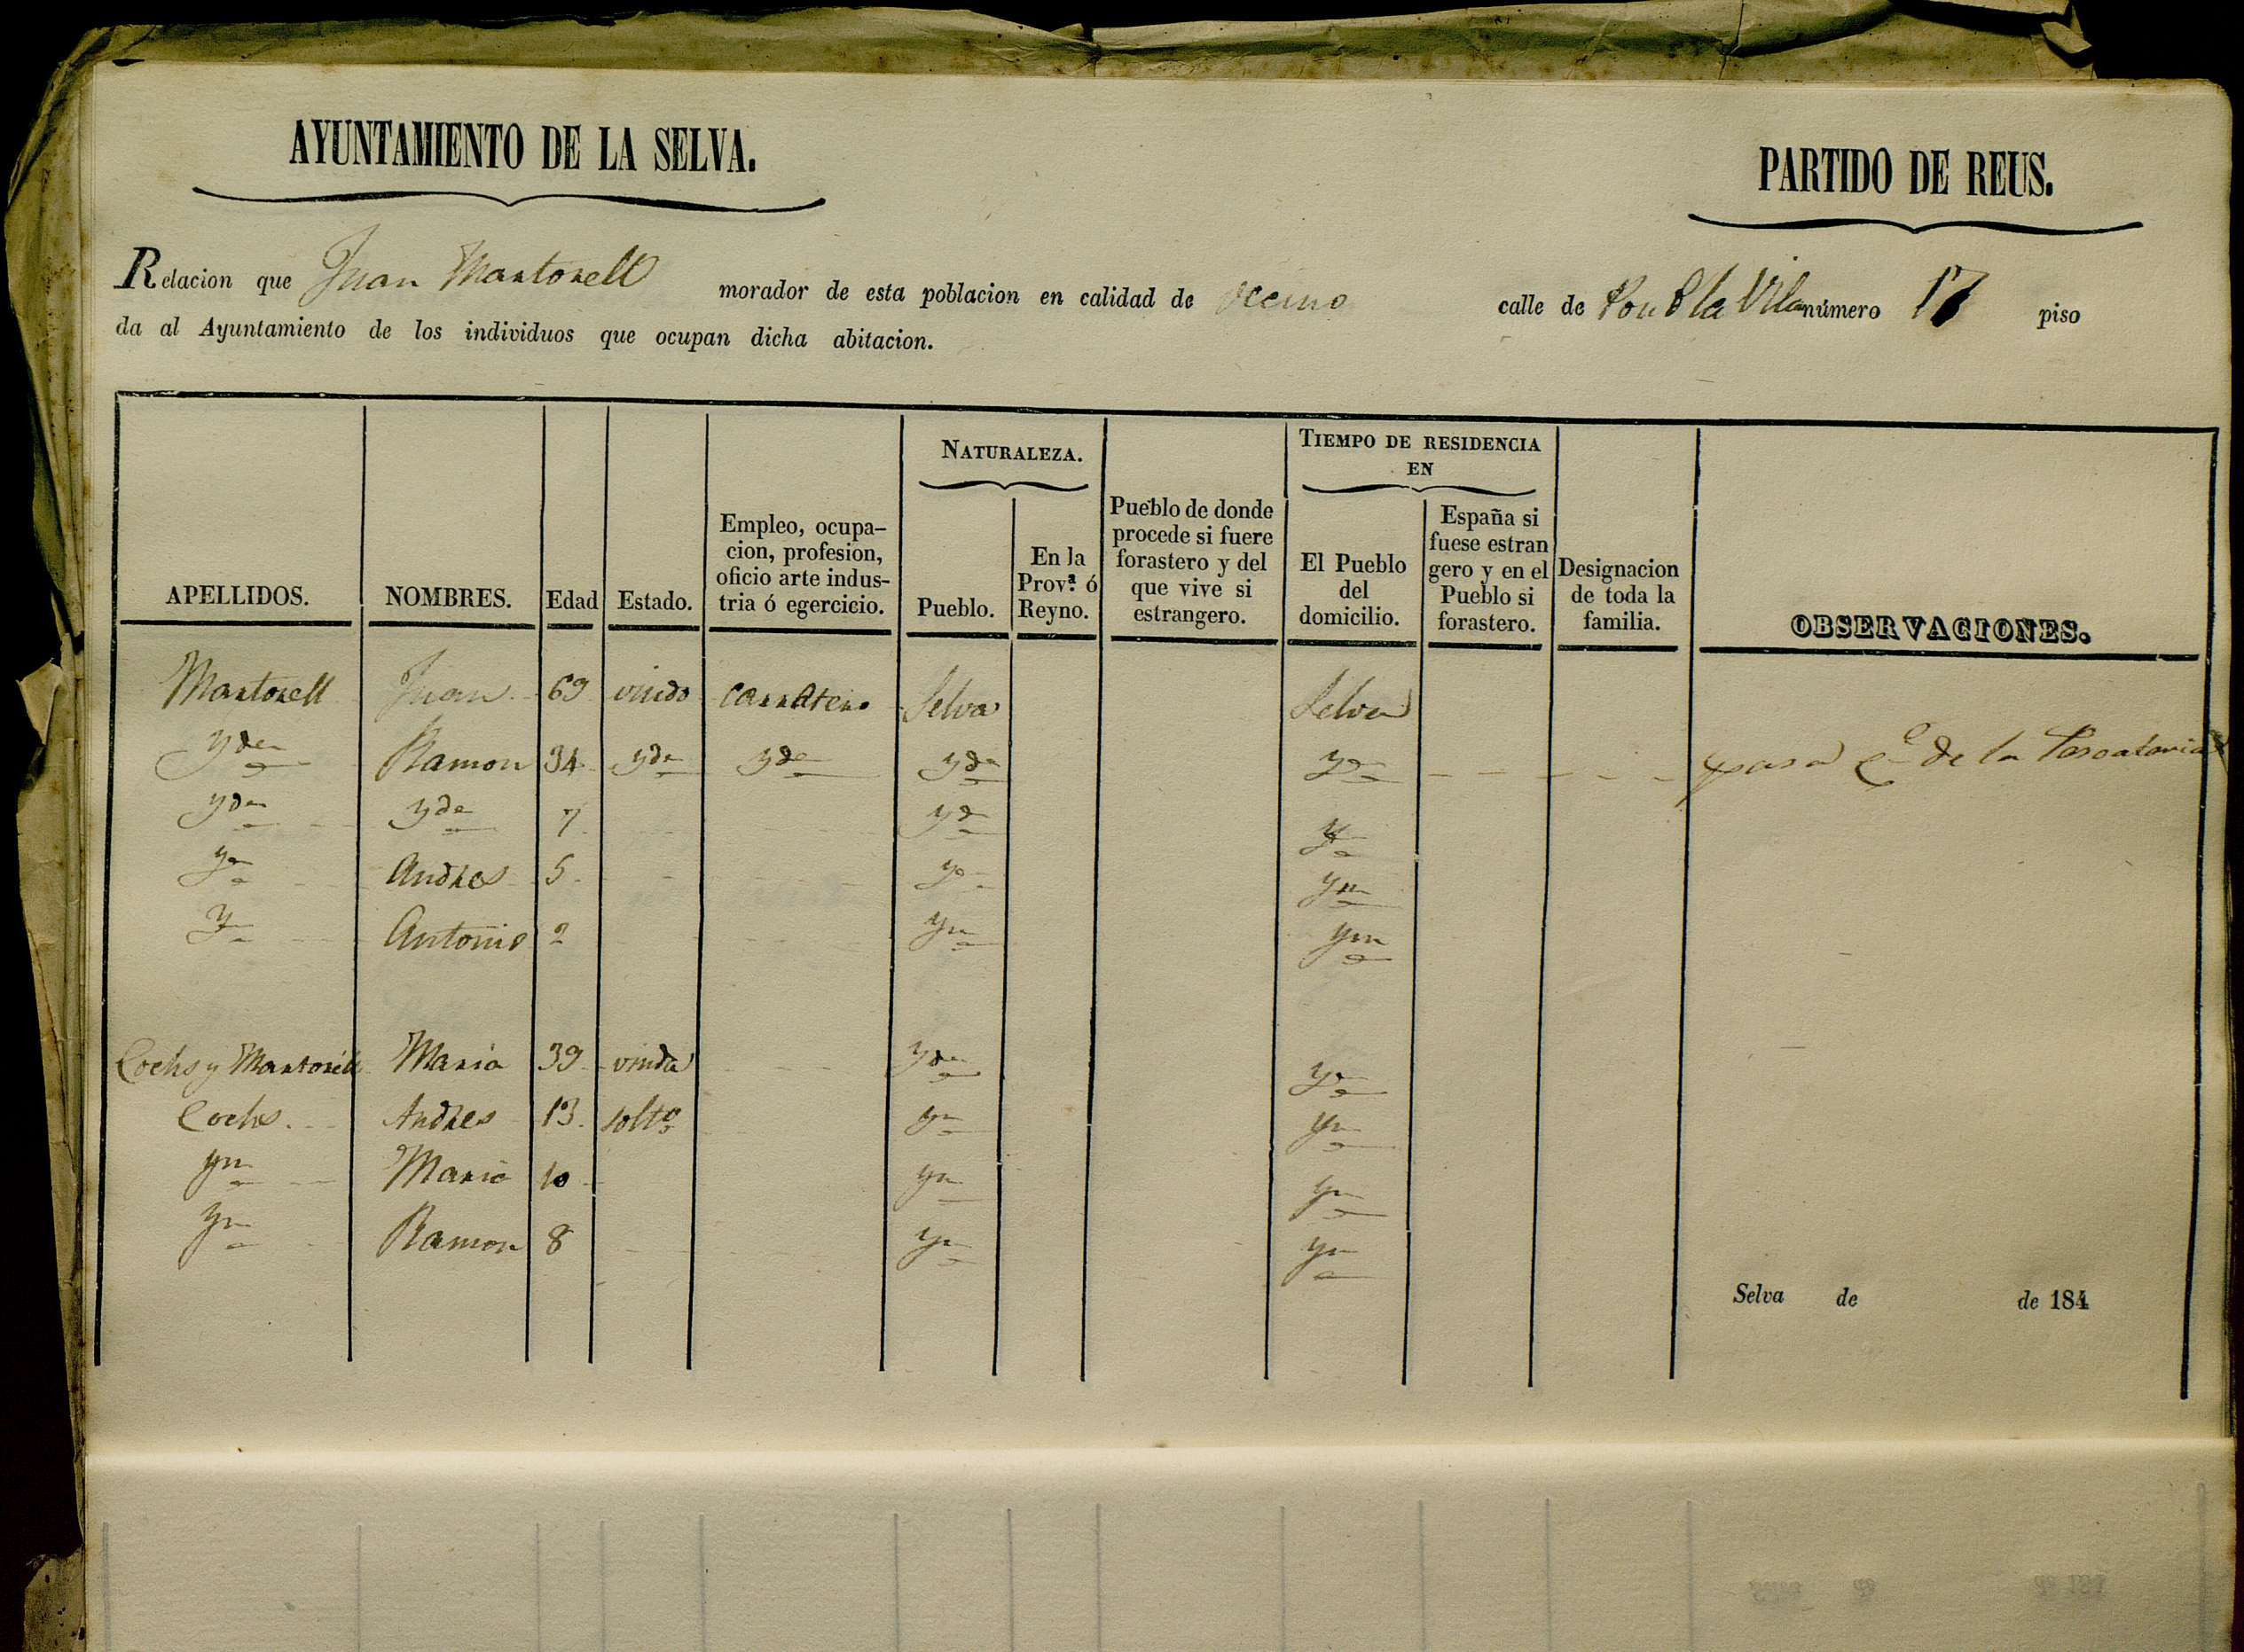 AYUNTAMIENTO DE LA SELVA.
PARTIDO DE REUS.
Relacion que Juan Martorell morador de esta poblacion en calidad de vecino calle de Pou d la Vila número 17 piso
da al Ayuntamiento de los individuos que ocupan dicha abitacion.
APELLIDOS. NOMBRES. Edad Estado. Empleo, ocupa-cion, profesion, oficio arte indus-tria ó egercicio. NATURALEZA. Pueblo. En la Prov.ª ó Reyno. Pueblo de donde procede si fuere forastero y del que vive si estrangero. TIEMPO DE RESIDENCIA EN El Pueblo del domicilio. España si fuese estran gero y en el Pueblo si forastero. Designacion de toda la familia. OBSERVACIONES.
Martorell Juan 69 viudo carratero Selva Selva
ydm Ramon 34 ydm ydm ydm ym pasa de la
ydm ydm 7 ydm ym
ym Andres 5 ym ym
ym Antonio 2 ym ym
Cochs y Martorell Maria 39 viuda ydm ym
Cochs Andres 13 solto ym ym
ym Maria 10 ym ym
ym Ramon 8 ym ym
Selva de de 184